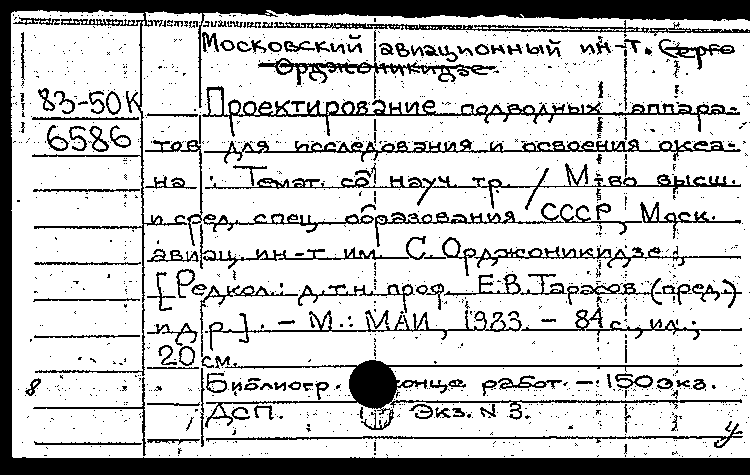 Московский авиационный ин-т. Серго
Орджоникидзе.
83-50К Проектирование подводных аппара-
6586 тов для исследования и освоения океа-
на : Темат. сб. науч. тр. / М-во высш.
и сред. спец. образования СССР, Моск.
авиац. ин-т им. С. Орджоникидзе ;
[Редкол.: д.т.н. проф. Е.В. Тарасов (пред.)
и др.]. - М.: МАИ, 1983. - 84 с., ил.;
20 см.
8 Библиогр. конце работ. - 150 экз.
ДСП. Экз. N 3.